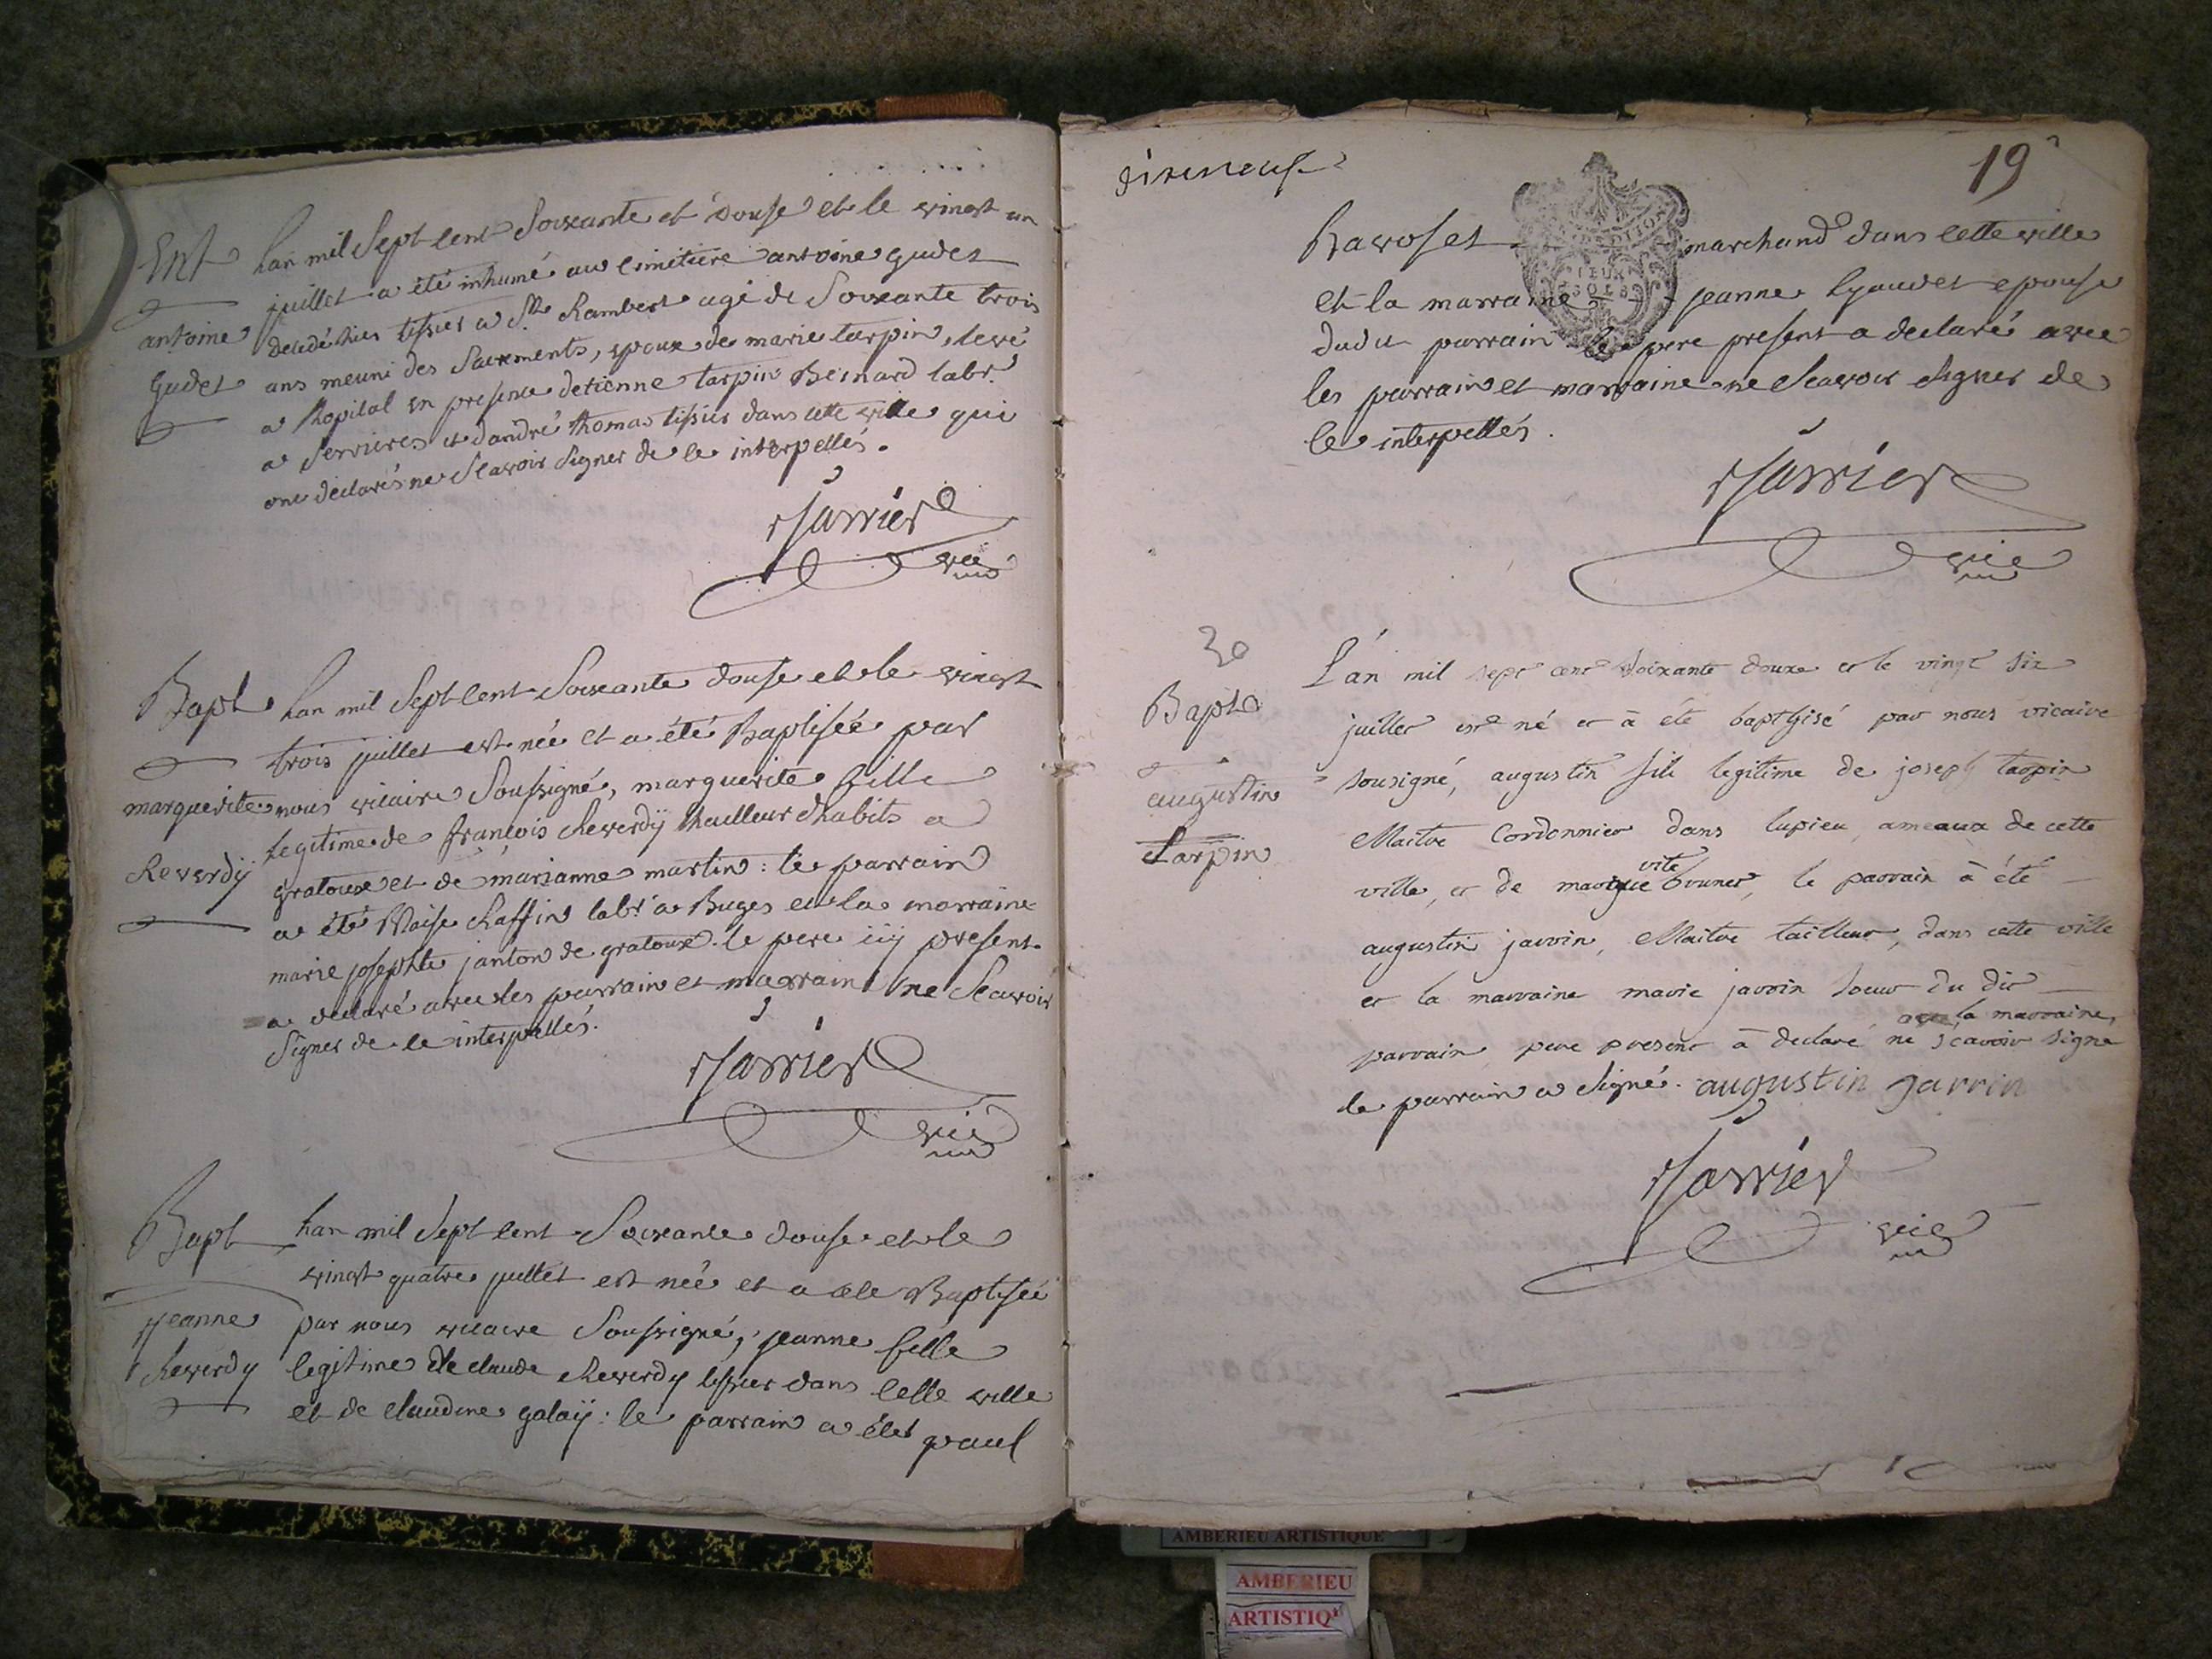 Ent
antoine
Gudet
Lan mil Sept Cent Soixante et douse et le vingt un
juillet a été inhumé au cimetiere antoine gudet
decedé hier tissier a St Rambert agé de Soixante trois
ans meuni des Sacrements, epoux de marie tarpin, levé
a lhopital en presence detienne tarpin Bernard labr
a Serrieres et dandré thomas tissier dans cette ville qui
ont declarés ne Scavoir Signer de ce interpellés.
Jarrier
vic
Bapt
marguerite
Reverdÿ
Lan mil Sept Cent Soixante douse et le vingt
trois juillet est née et a été Baptisée par
nous vicaire Soussigné, marguerite fille
legitime de françois Reverdÿ thailleur dhabits a
gratoux et de marianne martin : le parrain
a été Blaise Chaffin labr a Buges et la marraine
marie josephte janton de gratoux. le pere iiy present
a declaré avec les parrain et marraine ne Scavoir
Signer de ce interpellés.
Jarrier
vic
Bapt
jeanne
Reverdy
Lan mil Sept Cent Soixante douse et le
vingt quatre juillet est née et a été Baptisée
par nous vicaire Soussigné, jeanne fille
legitime de claude Reverdy tissier dans cette ville
et de claudine galaÿ : le parrain a été paul
dixneuf
19
Ravoset marchand dans cette ville
et la marraine jeanne Lyaudet epouse
dudit parrain le pere present a declaré avec
les parrain et marraine ne Scavoir Signer de
ce interpellés.
Jarrier
vic
30
Bapt
augustin
tarpin
L'an mil sept cent soixante douze et le vingt six
juillet est né et à été bapthisé par nous vicaire
sousigné, augustin fils legitime de joseph tarpin
Maitre Cordonnier dans lupieu, ameaux de cette
vite
ville, et de marguerite brunet, le parrain à été
augustin jarrin, Maitre tailleur, dans cette ville
et la marraine marie jarrin soeur du dit
avec la marraine,
parrain pere present à declaré ne scavoir signe
le parrain a Signé. augustin jarrin
Jarrier
vic
AMBERIEU ARTISTIQUE
AMBERIEU
ARTISTIQ